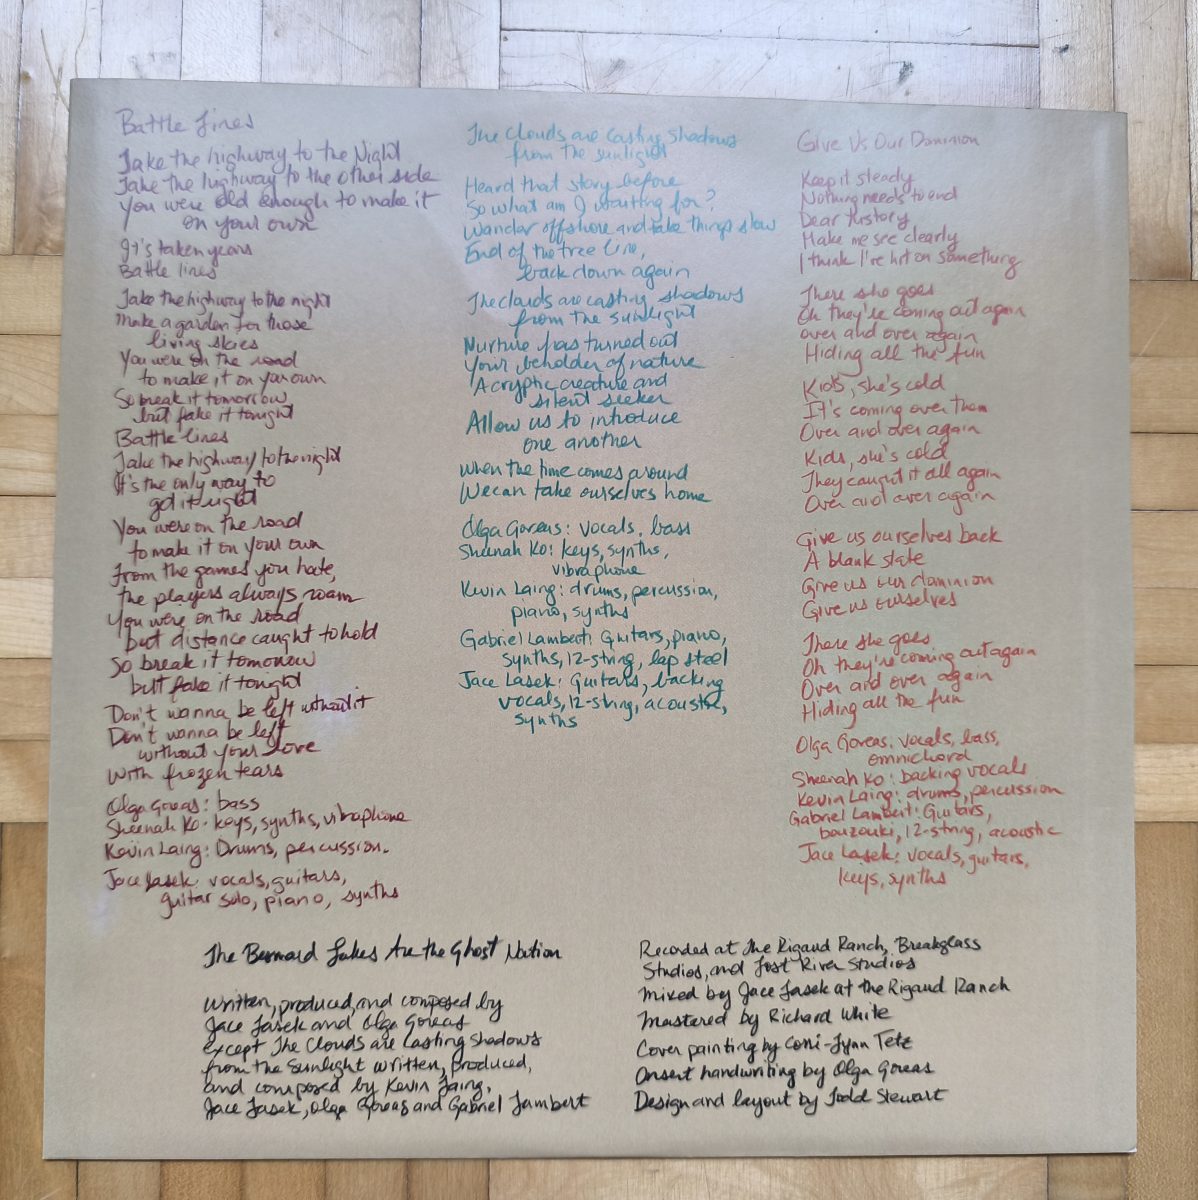 Battle Lines
Take the highway to the Night
Take the highway to the other side
You were old enough to make it
on your own
It's taken years
Battle lines
Take the highway to the night
Make a garden for those
living skies
You were on the road
to make it on your own
So break it tomorrow
but fake it tonight
Battle lines
Take the highway to the night
It's the only way to
get it right
You were on the road
to make it on your own
From the games you hate,
the players always roam
You were on the road
but distance caught to hold
So break it tomorrow
but fake it tonight
Don't wanna be left without it
Don't wanna be left
without your love
With frozen tears
Olga Goreas: bass
Sheenah Ko: keys, synths, vibraphone
Kevin Laing: Drums, percussion.
Jace Lasek: vocals, guitars,
guitar solo, piano, synths
The Clouds are Casting Shadows
from the sunlight
Heard that story before
So what am I waiting for?
Wander offshore and take things slow
End of the tree line,
back down again
The clouds are casting shadows
from the sunlight
Nurture has turned out
Your beholder of nature
A cryptic creature and
silent seeker
Allow us to introduce
one another
When the time comes around
We can take ourselves home
Olga Goreas: vocals, bass
Sheenah Ko: keys, synths,
vibraphone
Kevin Laing: drums, percussion,
piano, synths
Gabriel Lambert: Guitars, piano,
synths, 12-string, lap steel
Jace Lasek: Guitars, backing
vocals, 12-string, acoustic,
synths
Give Us Our Dominion
Keep it steady
Nothing needs to end
Dear history
Make me see clearly
I think I've hit on something
There she goes
Oh they're coming out again
over and over again
Hiding all the fun
Kids, she's cold
It's coming over them
Over and over again
Kids, she's cold
They caught it all again
Over and over again
Give us ourselves back
A blank slate
Give us our dominion
Give us ourselves
There she goes
Oh they're coming out again
Over and over again
Hiding all the fun
Olga Goreas: vocals, bass,
omnichord
Sheenah Ko: backing vocals
Kevin Laing: drums, percussion
Gabriel Lambert: Guitars,
bouzouki, 12-string, acoustic
Jace Lasek: vocals, guitars,
keys, synths
The Besnard Lakes Are the Ghost Nation
Written, produced, and composed by
Jace Lasek and Olga Goreas
except The Clouds are Casting Shadows
from the Sunlight written, produced,
and composed by Kevin Laing,
Jace Lasek, Olga Goreas and Gabriel Lambert
Recorded at The Rigaud Ranch, Breakglass
Studios, and Lost River Studios
Mixed by Jace Lasek at the Rigaud Ranch
Mastered by Richard White
Cover painting by Corri-Lynn Tetz
Onsert handwriting by Olga Goreas
Design and layout by Todd Stewart